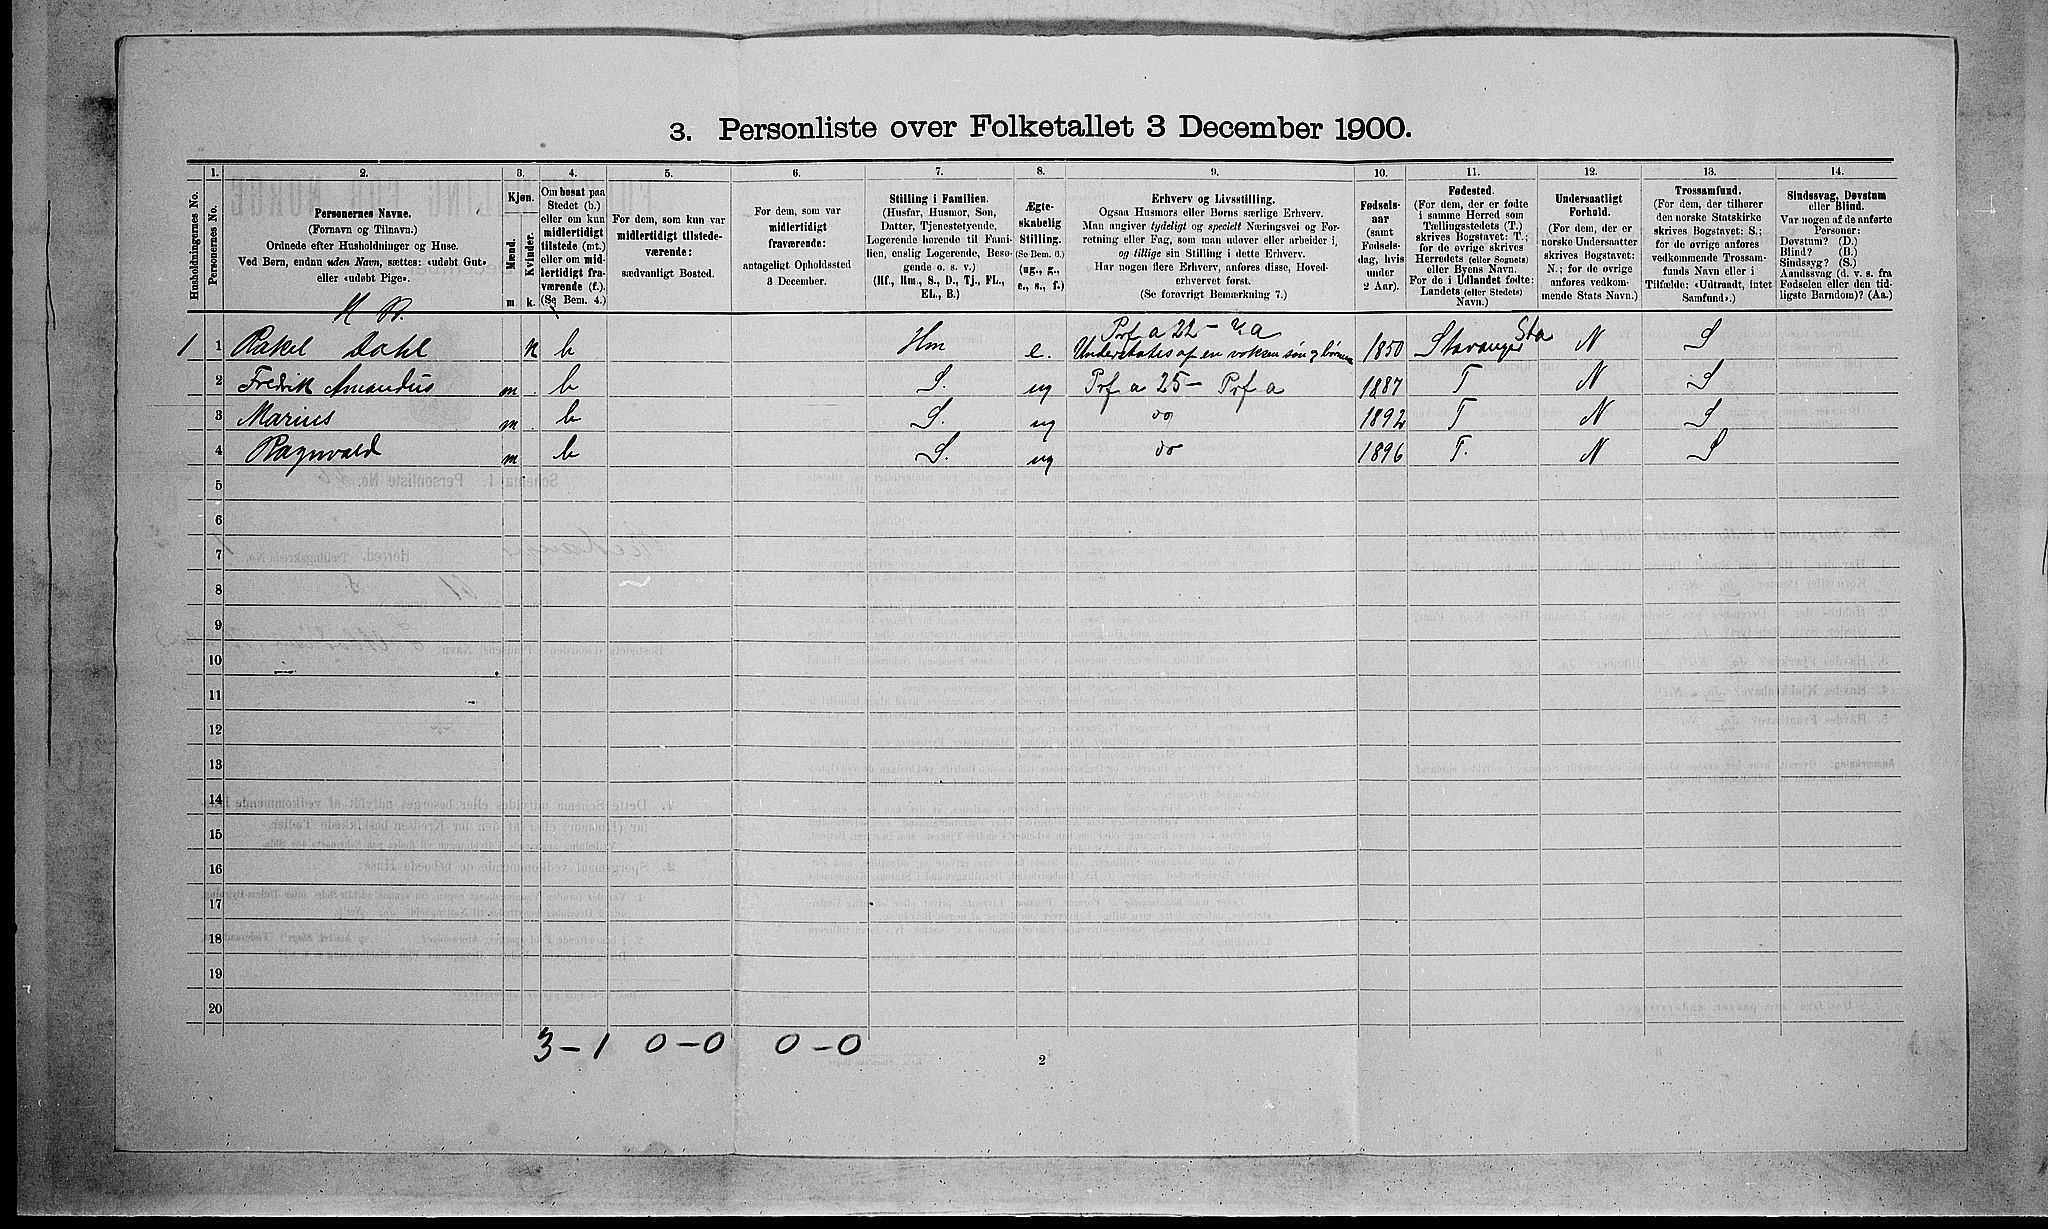 3. Personliste over Folketallet 3 December 1900.
Husholdningernes No.
1.
Personernes No.
2.
Personernes Navne.
(Fornavn og Tilnavn.)
Ordnede efter Husholdninger og Huse.
Ved Børn, endnu uden Navn, sættes: «udøbt Gut»
eller «udøbt Pige».
3.
Kjøn.
Mænd.
Kvinder.
m
k.
4.
Om bosat paa
Stedet (b.)
eller om kun
midlertidigt
tilstede (mt.)
eller om mid-
lertidigt fra-
værende (f.).
(Se Bem. 4.)
5.
For dem, som kun var
midlertidigt tilstede-
værende:
sædvanligt Bosted.
6.
For dem, som var
midlertidigt
fraværende:
antageligt Opholdssted
3 December.
7.
Stilling i Familien.
(Husfar, Husmor, Søn,
Datter, Tjenestetyende,
Logerende hørende til Fami-
lien, enslig Logerende, Besø-
gende o. s. v.)
(Hf., Hm., S., D., Tj., FL.,
EL., B.)
8.
Ægte-
skabelig
Stilling.
(Se Bem. 6.)
(ug., g.,
e., s., f.)
9.
Erhverv og Livsstilling.
Ogsaa Husmors eller Børns særlige Erhverv.
Man angiver tydeligt og specielt Næringsvei og For-
retning eller Fag, som man udøver eller arbeider i,
og tillige sin Stilling i dette Erhverv.
Har nogen flere Erhverv, anføres disse, Hoved-
erhvervet først.
(Se forøvrigt Bemærkning 7.)
10.
Fødsels-
aar
(samt
Fødsels-
dag, hvis
under
2 Aar).
11.
Fødested.
(For dem, der er fødte
i samme Herred som
Tællingsstedets (T.)
skrives Bogstavet: T.;
for de øvrige skrives
Herredets (eller Sognets)
eller Byens Navn.
For de i Udlandet fødte:
Landets (eller Stedets)
Navn.)
12.
Undersaatligt
Forhold.
(For dem, der er
norske Undersaatter
skrives Bogstavet:
N.; for de øvrige
anføres vedkom-
mende Stats Navn.)
13.
Trossamfund.
(For dem, der tilhører
den norske Statskirke
skrives Bogstavet: S.;
for de øvrige anføres
vedkommende Trossam-
funds Navn eller i
Tilfælde: «Udtraadt, intet
Samfund».)
14.
Sindssvag, Døvstum
eller Blind.
Var nogen af de anførte
Personer:
Døvstum? (D.)
Blind? (B.)
Sindssyg? (S.)
Aandssvag (d. v. s. fra
Fødselen eller den tid-
ligste Barndom)? (Aa.)
1 1 Rakel Dahl k b Hm e. Understøttes af en voksen søn 1850 Stavanger Sta N S
2 Fredrik Amandus m b S. ug Prf a 25 - Prf a 1887 T N S
3 Marius m b S. ug do 1892 T N S
4 Ragnvald m b S. ug do 1896 T. N S
5
6
7
8
9
10
11
12
13
14
15
16
17
18
19
20
3 - 1 0 - 0 0 - 0
2